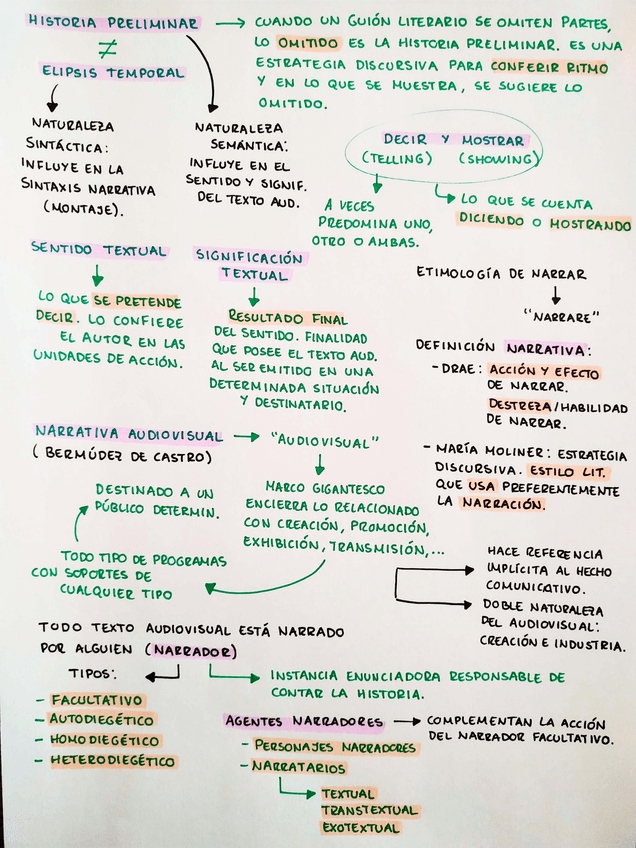 HISTORIA PRELIMINAR → CUANDO UN GUIÓN LITERARIO SE OMITEN PARTES,
LO OMITIDO ES LA HISTORIA PRELIMINAR. ES UNA
ESTRATEGIA DISCURSIVA PARA CONFERIR RITMO
Y EN LO QUE SE MUESTRA, SE SUGIERE LO
OMITIDO.
≠
ELIPSIS TEMPORAL
NATURALEZA
SINTÁCTICA:
INFLUYE EN LA
SINTAXIS NARRATIVA
(MONTAJE).
NATURALEZA
SEMÁNTICA:
INFLUYE EN EL
SENTIDO Y SIGNIF.
DEL TEXTO AUD.
DECIR Y MOSTRAR
(TELLING) (SHOWING)
A VECES
PREDOMINA UNO,
OTRO O AMBAS.
LO QUE SE CUENTA
DICIENDO O MOSTRANDO
SENTIDO TEXTUAL
LO QUE SE PRETENDE
DECIR. LO CONFIERE
EL AUTOR EN LAS
UNIDADES DE ACCIÓN.
SIGNIFICACIÓN
TEXTUAL
RESULTADO FINAL
DEL SENTIDO. FINALIDAD
QUE POSEE EL TEXTO AUD.
AL SER EMITIDO EN UNA
DETERMINADA SITUACIÓN
Y DESTINATARIO.
ETIMOLOGÍA DE NARRAR
"NARRARE"
DEFINICIÓN NARRATIVA:
- DRAE: ACCIÓN Y EFECTO
DE NARRAR.
DESTREZA/HABILIDAD
DE NARRAR.
- MARÍA MOLINER: ESTRATEGIA
DISCURSIVA. ESTILO LIT.
QUE USA PREFERENTEMENTE
LA NARRACIÓN.
NARRATIVA AUDIOVISUAL → "AUDIOVISUAL"
(BERMÚDEZ DE CASTRO)
MARCO GIGANTESCO
ENCIERRA LO RELACIONADO
CON CREACIÓN, PROMOCIÓN,
EXHIBICIÓN, TRANSMISIÓN,...
DESTINADO A UN
PÚBLICO DETERMIN.
TODO TIPO DE PROGRAMAS
CON SOPORTES DE
CUALQUIER TIPO
HACE REFERENCIA
IMPLÍCITA AL HECHO
COMUNICATIVO.
DOBLE NATURALEZA
DEL AUDIOVISUAL:
CREACIÓN E INDUSTRIA.
TODO TEXTO AUDIOVISUAL ESTÁ NARRADO
POR ALGUIEN (NARRADOR)
TIPOS:
- FACULTATIVO
- AUTODIEGÉTICO
- HOMODIEGÉTICO
- HETERODIEGÉTICO
INSTANCIA ENUNCIADORA RESPONSABLE DE
CONTAR LA HISTORIA.
AGENTES NARRADORES → COMPLEMENTAN LA ACCIÓN
DEL NARRADOR FACULTATIVO.
- PERSONAJES NARRADORES
- NARRATARIOS
TEXTUAL
TRANSTEXTUAL
EXOTEXTUAL